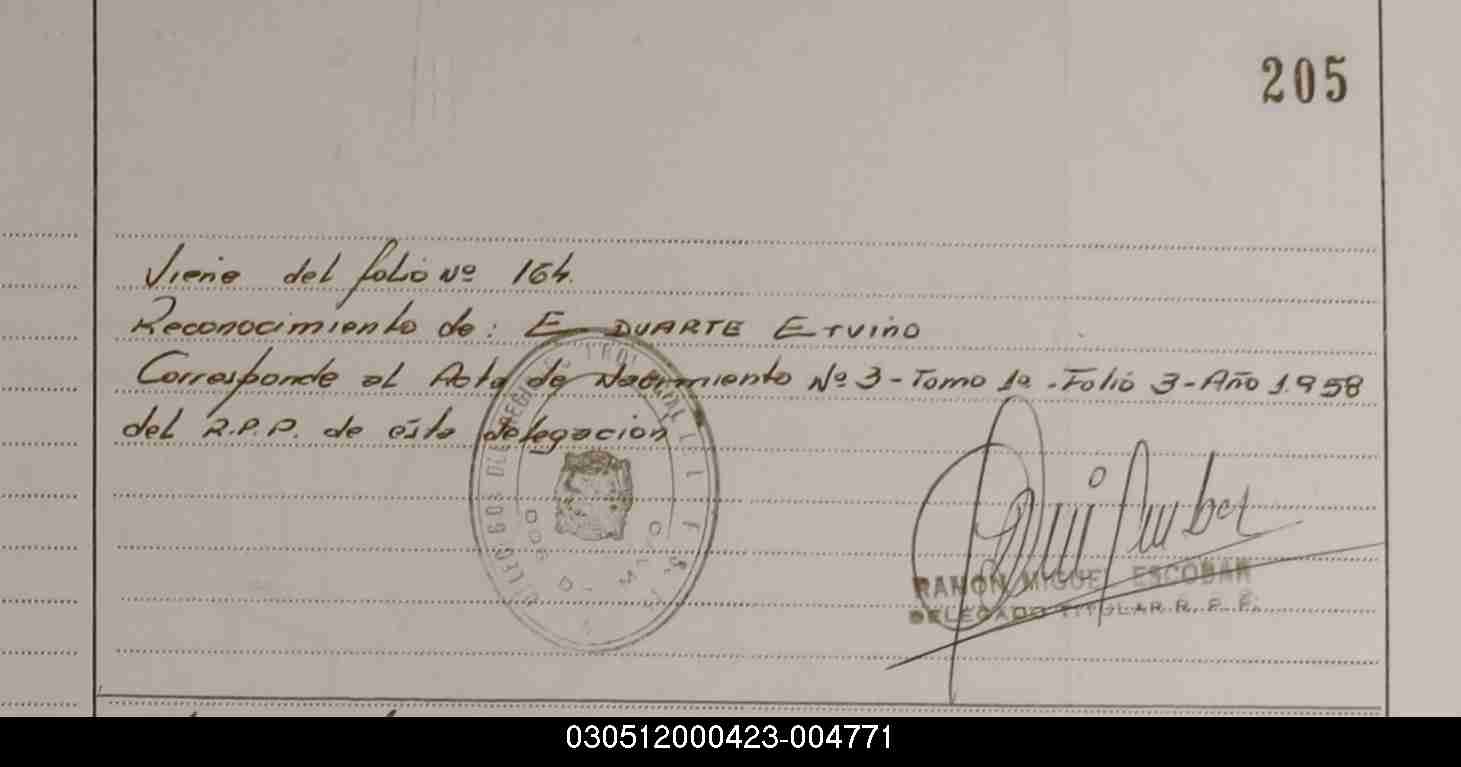 205
Viene del folio Nº 164.
Reconocimiento de: E DUARTE Ervino
Corresponde al Acta de Nacimiento Nº 3 - Tomo 1º - Folio 3 - Año 1.958
del R.P.P. de ésta delegación
RAMON MIGUEL ESCOBAR
DELEGADO TITULAR R. P. P.
030512000423-004771